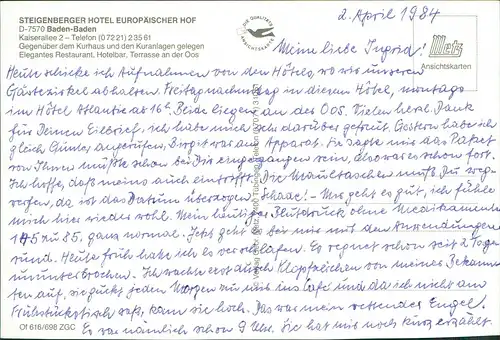 STEIGENBERGER HOTEL EUROPÄISCHER HOF
D-7570 Baden-Baden
Kaiserallee 2 – Telefon (07221) 23561
Gegenüber dem Kurhaus und den Kuranlagen gelegen
Elegantes Restaurant, Hotelbar, Terrasse an der Oos
DIE QUALITÄTS ANSICHTSKARTEN
Metz
Ansichtskarten
2. April 1984
Meine liebe Ingrid!
Heute schicke ich Aufnahmen von den Hotels, wo wir unseren
Gästezirkel abhalten. Freitagnachmittag in diesem Hotel, montags
im Hotel Atlantic ab 16h. Beide liegen an der Oos. Vielen herzl. Dank
für Deinen Eilbrief, ich habe mich sehr darüber gefreut. Gestern habe ich
gleich Günter angerufen, Birgit war am Apparat. Sie sagte mir das Paket
von Ihnen müßte schon bei Dir eingegangen sein, also war es schon fort.
Ich hoffe, daß meins auch eintrifft. Die Maultaschen mußt Du weg-
werfen, da ist das Datum überzogen. Schade! – Mir geht es gut, ich fühle
mich hier wieder wohl. Mein heutiger Blutdruck ohne Medikamente
145 zu 85, ganz normal. Jetzt geht es bei mir mit den Anwendungen
rund. Heute früh habe ich es verschlafen. Es regnet schon seit 2 Tage
ununterbrochen. Ich wachte erst durch Klopfzeichen von meiner Bekann-
ten auf, sie guckt jeden Morgen zu mir ins Café und da ich nicht am
Frühstückstisch saß, kam sie hoch. Das war mein rettender Engel.
Es war nämlich schon 9 Uhr. Sie hat mir noch kurz erzählt.
Of 616/698 ZGC